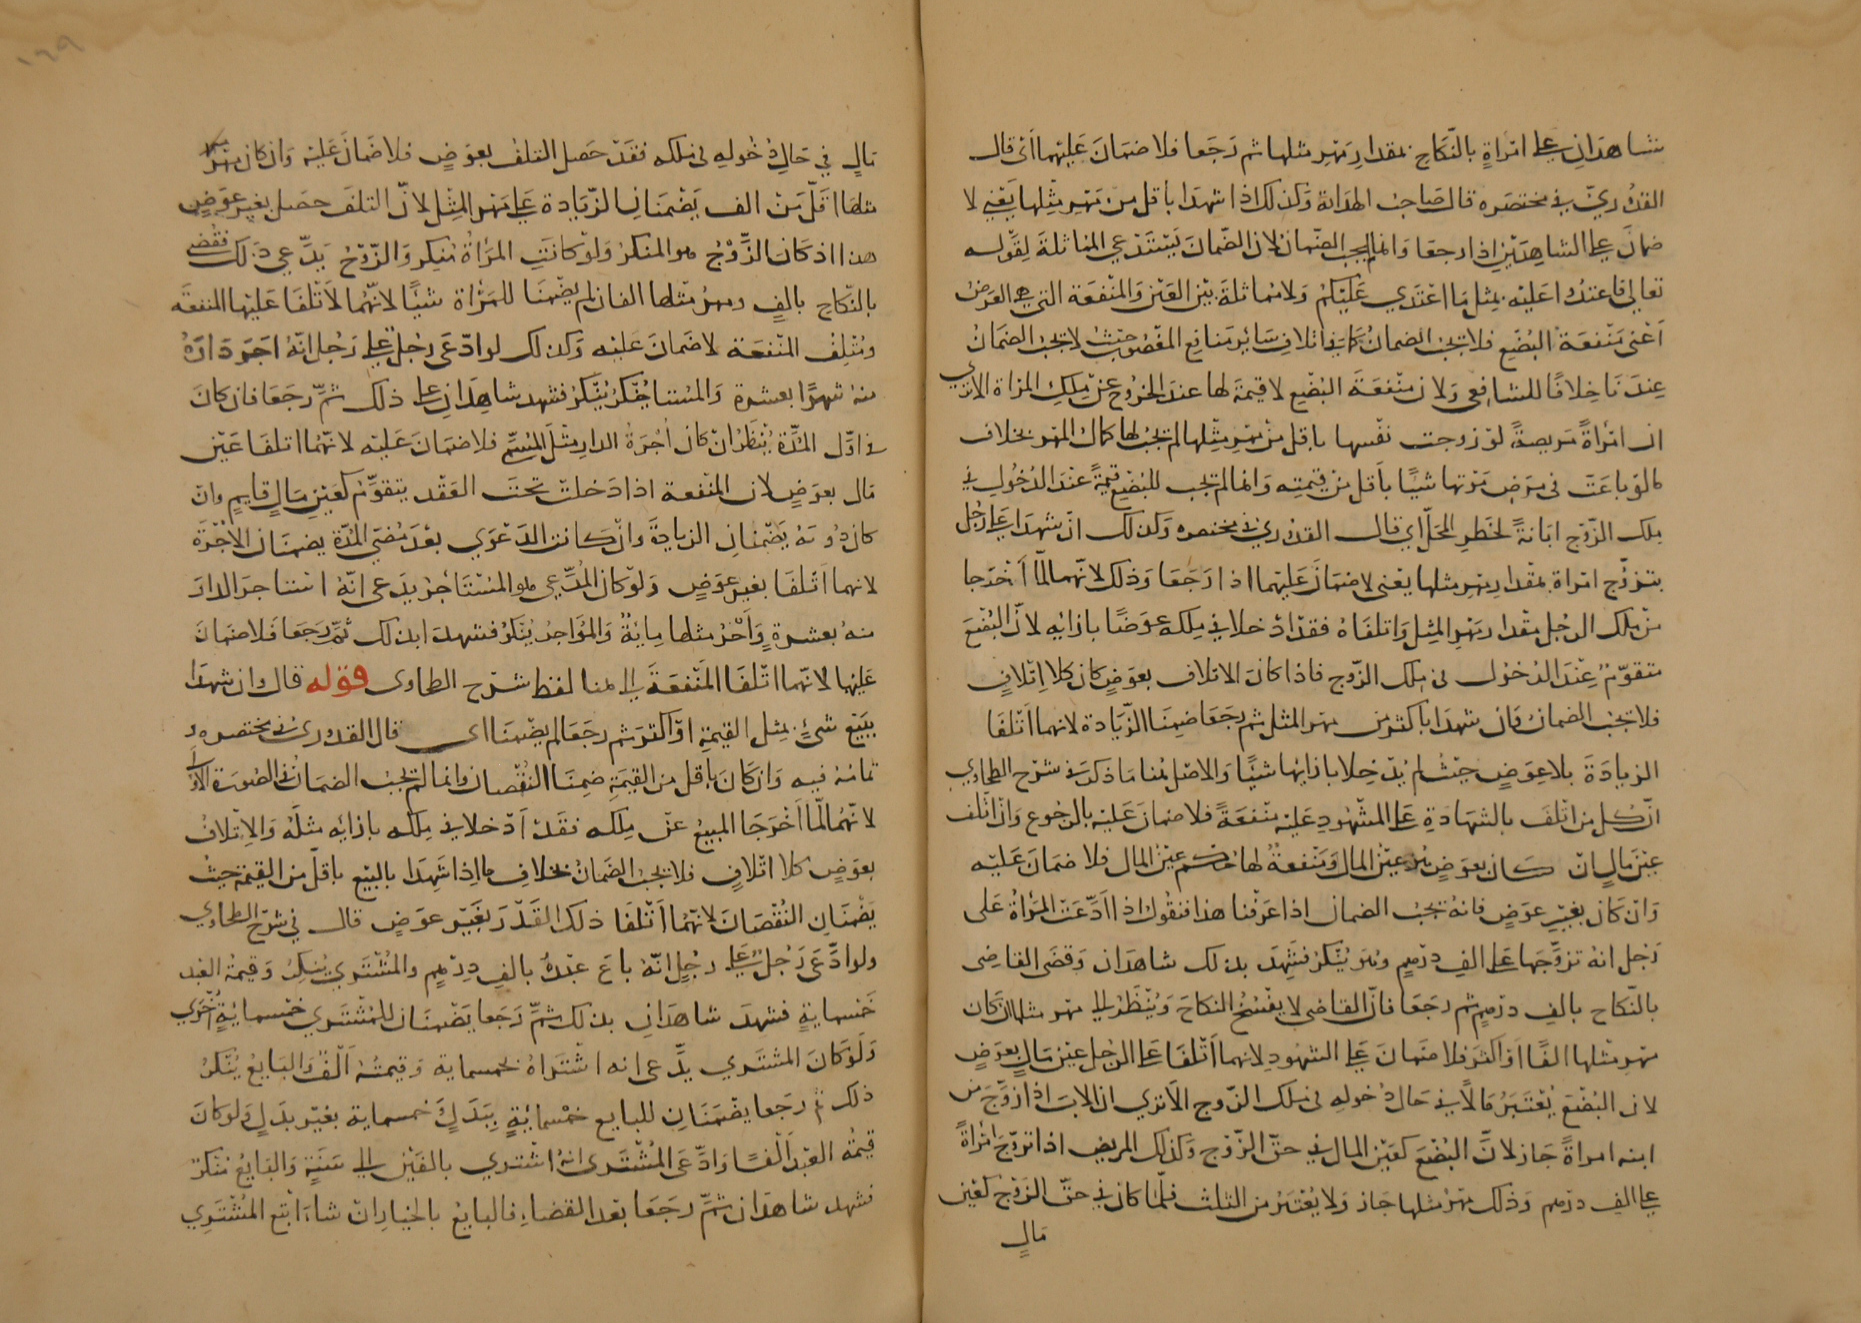 شاهدان على امراة بالنكاح بمقدار مهر مثلها ثم رجعا فلا ضمان عليهما اى قال
القدوري في مختصره قال صاحب الهداية وكذلك اذا شهدا بأقل من مهر مثلها يعني لا
ضمان على الشاهدين اذا رجعا وانما لم يجب الضمان لان الضمان يستدعي المماثلة لقوله
تعالى فاعتدوا عليه بمثل ما اعتدي عليكم ولا مماثلة بين العين والمنفعة التي هي العرض
أعنى منفعة البضع فلا يجب الضمان كما في اتلاف سائر منافع المغصوب حيث لا يجب الضمان
عندنا خلافا للشافعي ولان منفعة البضع لا قيمة لها عند الخروج عن ملك المراة الا ترى
ان امرأة مريضة لو زوجت نفسها باقل من مهر مثلها لم يجب لها كمال المهر بخلاف
ما لو باعت في مرض موتها شيئا بأقل من قيمته وانما لم تجب للبضع قيمة عند الدخول في
ملك الزوج ابانة لخطر المحل اي قال القدوري في مختصره وكذلك ان شهدا على رجل
بتزوج امراة بمقدار مهر مثلها يعني لا ضمان عليهما اذا رجعا وذلك لانهما لما أخرجا
من ملك الرجل مقدار مهر المثل واتلفاه فقد ادخلا في ملكه عوضا بازائه لان البضع
متقوم عند الدخول في ملك الزوج فاذا كان الاتلاف بعوض كان كلا اتلاف
فلا يجب الضمان وان شهدا باكثر من مهر المثل ثم رجعا ضمنا الزيادة لانهما أتلفا
الزيادة بلا عوض حيث لم يدخلا بازايها شيئا والاصل هنا ما ذكر في شرح الطحاوي
ان كل من اتلف بالشهادة على المشهود عليه منفعة فلا ضمان عليه بالرجوع وان اتلف
عين مال ان كان بعوض من عين المال ومنفعة لها حكم عين المال فلا ضمان عليه
وان كان بغير عوض فانه يجب الضمان اذا عرفنا هذا فنقول اذا ادعت المرأة على
رجل انه تزوجها على الف درهم وهو ينكر فشهد بذلك شاهدان وقضى القاضي
بالنكاح بالف درهم ثم رجعا فان القاضي لا يفسخ النكاح وينظر الى مهر مثلها ان كان
مهر مثلها الفا أو اكثر فلا ضمان على الشهود لانهما أتلفا على الرجل عين مال بعوض
لان البضع يعتبر مالا في حال دخوله في ملك الزوج الا ترى ان الاب اذا زوج من
ابنه امراة جاز لان البضع كعين المال في حق الزوج وكذلك المريض اذا تزوج امرأة
على الف درهم وذلك مهر مثلها جاز ولا يعتبر من الثلث فلما كان في حق الزوج كعين
مال
١٦٩
مال في حال دخوله في ملكه فقد حصل التلف بعوض فلا ضمان عليه وان كان مهر
مثلها اقل من الف يضمنان الزيادة على مهر المثل لان التلف حصل بغير عوض
هذا اذ كان الزوج هو المنكر ولو كانت المرأة تنكر والزوج يدعي ذلك فقضى
بالنكاح بالف ومهر مثلها الفان لم يضمنا للمرأة شيئا لانهما لا تلفا عليها المنفعة
ومتلف المنفعة لا ضمان عليه وكذلك لو ادعى رجل على رجل انه اجر داره
منه شهرا بعشرة والمستاجر ينكر فشهد شاهدان على ذلك ثم رجعا فان كان
في اول المدة ينظر ان كان أجرة الدار مثل المسمى فلا ضمان عليه لانهما اتلفا عين
مال بعوض لان المنفعة اذا دخلت تحت العقد يتقوم كعين مال قايم وان
كان دونه يضمنان الزيادة وان كانت الدعوي بعد مضي المدة يضمنان الأجرة
لانهما أتلفا بغير عوض ولو كان المدعي هو المستأجر يدعى انه استاجر الدار
منه بعشرة وأجر مثلها ماية والمؤاجر ينكر فشهد ابذلك ثم رجعا فلا ضمان
عليها لانهما اتلفا المنفعة الى هنا لفظ شرح الطحاوى قوله قال وان شهدا
ببيع شئ بمثل القيمة او اكثر ثم رجعا لم يضمنا اى قال القدوري في مختصره و
تمامه فيه وان كان باقل من القيمة ضمنا النقصان وانما لم يجب الضمان في الصورة الاولى
لانهما لما أخرجا المبيع عن ملكه فقد أدخلا في ملكه بازائه مثله والاتلاف
بعوض كلا اتلاف فلا يجب الضمان بخلاف ما اذا شهدا بالبيع باقل من القيمة حيث
يضمنان النقصان لانهما أتلفا ذلك القدر بغير عوض قال في شرح الطحاوي
ولو ادعى رجل على رجل انه باع عبده بالف درهم والمشتري ينكر وقيمة العبد
خمسماية فشهد شاهدان بذلك ثم رجعا يضمنان للمشتري خمسماية أخرى
ولو كان المشتري يدعى انه اشتراه بخمسماية وقيمته ألف والبايع ينكر
ذلك ثم رجعا يضمنان للبايع خمسماية بغير بدل ولو كان
قيمة العبد ألفا وادعى المشترى انه اشترى بالفين الى سنة والبايع ينكر
فشهد شاهدان ثم رجعا بعد القضاء فالبايع بالخيار ان شاء اتبع المشتري